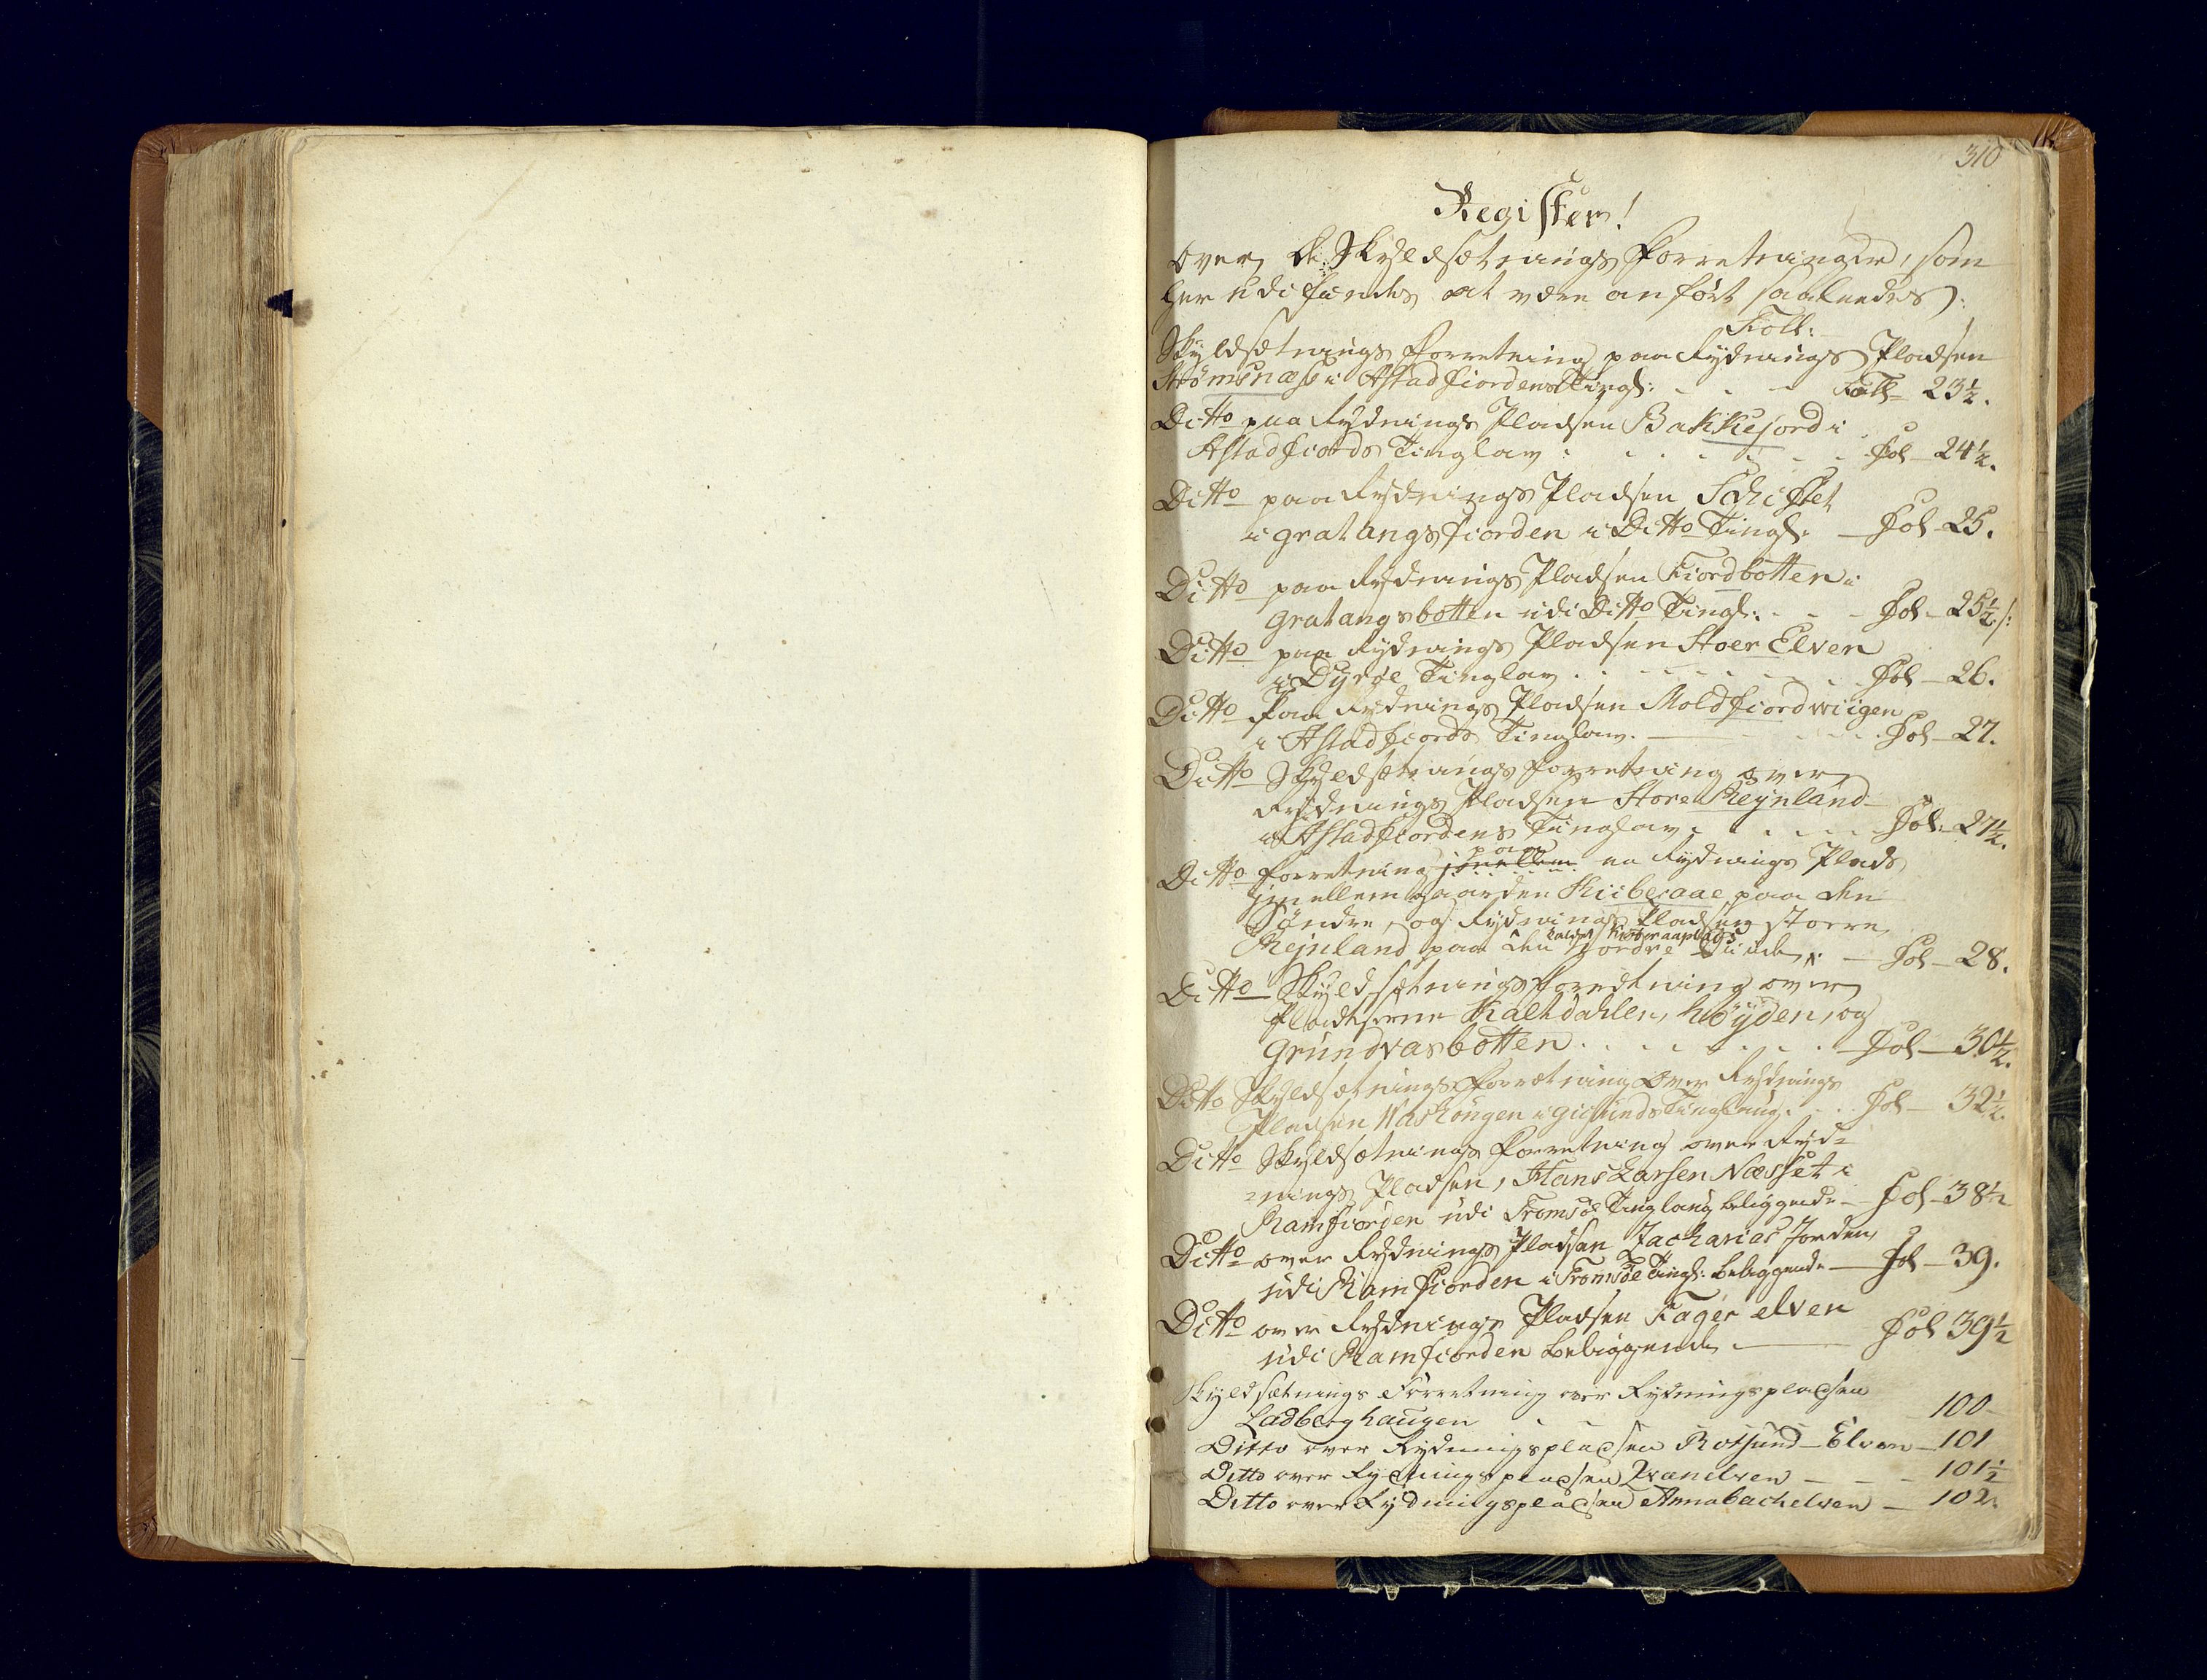 310
Register!
over de Skyldsætnings Forretninger, som
her udi findes at være anført saaledes:
Foll:
Skyldsætnings Forretning paa Rydnings Pladsen
Strømsnæss i Astadfiordens Tingl: Foll 23½.
Ditto paa Rydnings Pladsen Bakkejord i
Astadfiords Tinglav Fol 24½.
Ditto paa Rydnings Pladsen Schiftet
i gratangsfiorden i Ditto Tingl: Fol 25.
Ditto paa Rydnings Pladsen Fiordbotten i
gratangsbotten udi Ditto Tingl: Fol 25½ /:
Ditto paa Rydnings Pladsen Stoer Elven
i Dyrøe Tinglav Fol 26.
Ditto Paa Rydnings Pladsen Moldfiordwiigen
i Astadfiords Tinglav. Fol 27.
Ditto Skyldsætnings Forretning over
Rydnings Pladsen Store Rejnland
i Astadfiordens Tinglav Fol: 27½.
paa
Ditto Forretning imellem en Rydnings Plads
imellem gaarden Kiiberaae paa den
Søndre, og Rydnings Pladsen storre
kaldet Kiiberaaplads
Rejnland paa den Nordre Siide, Fol 28.
Ditto Skyldsætnings Foredtning over
Pladserne Kaltdahlen, høyden, og
Grundvasbotten Fol 30½.
Ditto Skyldsætnings Forretning over Rydnings
Pladsen Waskongen i gisunds Tinglaug. Fol 32½.
Ditto Skyldsætnings Forretning over Ryd=
=nings Pladsen, Hans Larsen Næsset i
Ramfiorden udi Tromsøe Tinglaug beliggende Fol 38½
Ditto over Rydnings Pladsen Zacharias Jorden
udi Ramfiorden i Tromsøe Tingl: beliggende Fol 39.
Ditto over Rydnings Pladsen Fager elven
udi Ramfiorden beliggende Fol 39½
Skyldsætnings Forretning over Rydningspladsen
Ladberghaugen 100
Ditto over Rydningspladsen Rotsund-Elven 101
Ditto over Rydningspladsen Qvænelven 101½
Ditto over Rydningspladsen Annabachelven 102.